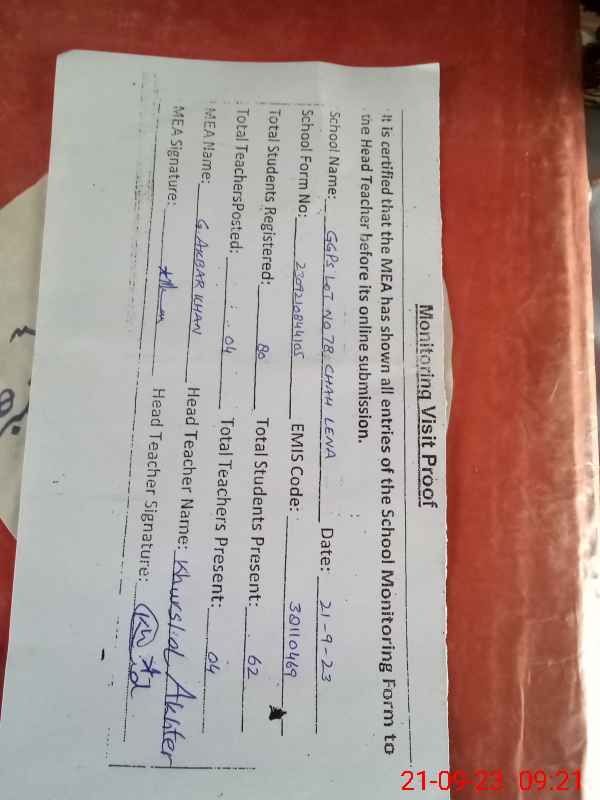 Monitoring Visit Proof
It is certified that the MEA has shown all entries of the School Monitoring Form to
the Head Teacher before its online submission.
School Name: GGPS LOT NO 78, CHAH LENA Date: 21-9-23
School Form No: 230921084410S EMIS Code: 38110469
Total Students Registered: 80 Total Students Present: 62
Total TeachersPosted: 04 Total Teachers Present: 04
MEA Name: G. AKBAR KHAN Head Teacher Name: Khurshid Akhter
MEA Signature: Head Teacher Signature:
21-09-23 09:21